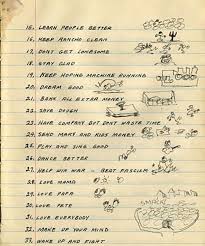 15. LEARN PEOPLE BETTER
16. KEEP RANCHO CLEAN
17. DONT GET LONESOME
18. STAY GLAD
19. KEEP HOPING MACHINE RUNNING
20. DREAM GOOD
21. BANK ALL EXTRA MONEY
22. SAVE DOUGH
23. HAVE COMPANY BUT DONT WASTE TIME
24. SEND MARY AND KIDS MONEY
25. PLAY AND SING GOOD
26. DANCE BETTER
27. HELP WIN WAR - BEAT FASCISM
28. LOVE MAMA
29. LOVE PAPA
30. LOVE PETE
31. LOVE EVERYBODY
32. MAKE UP YOUR MIND
33. WAKE UP AND FIGHT